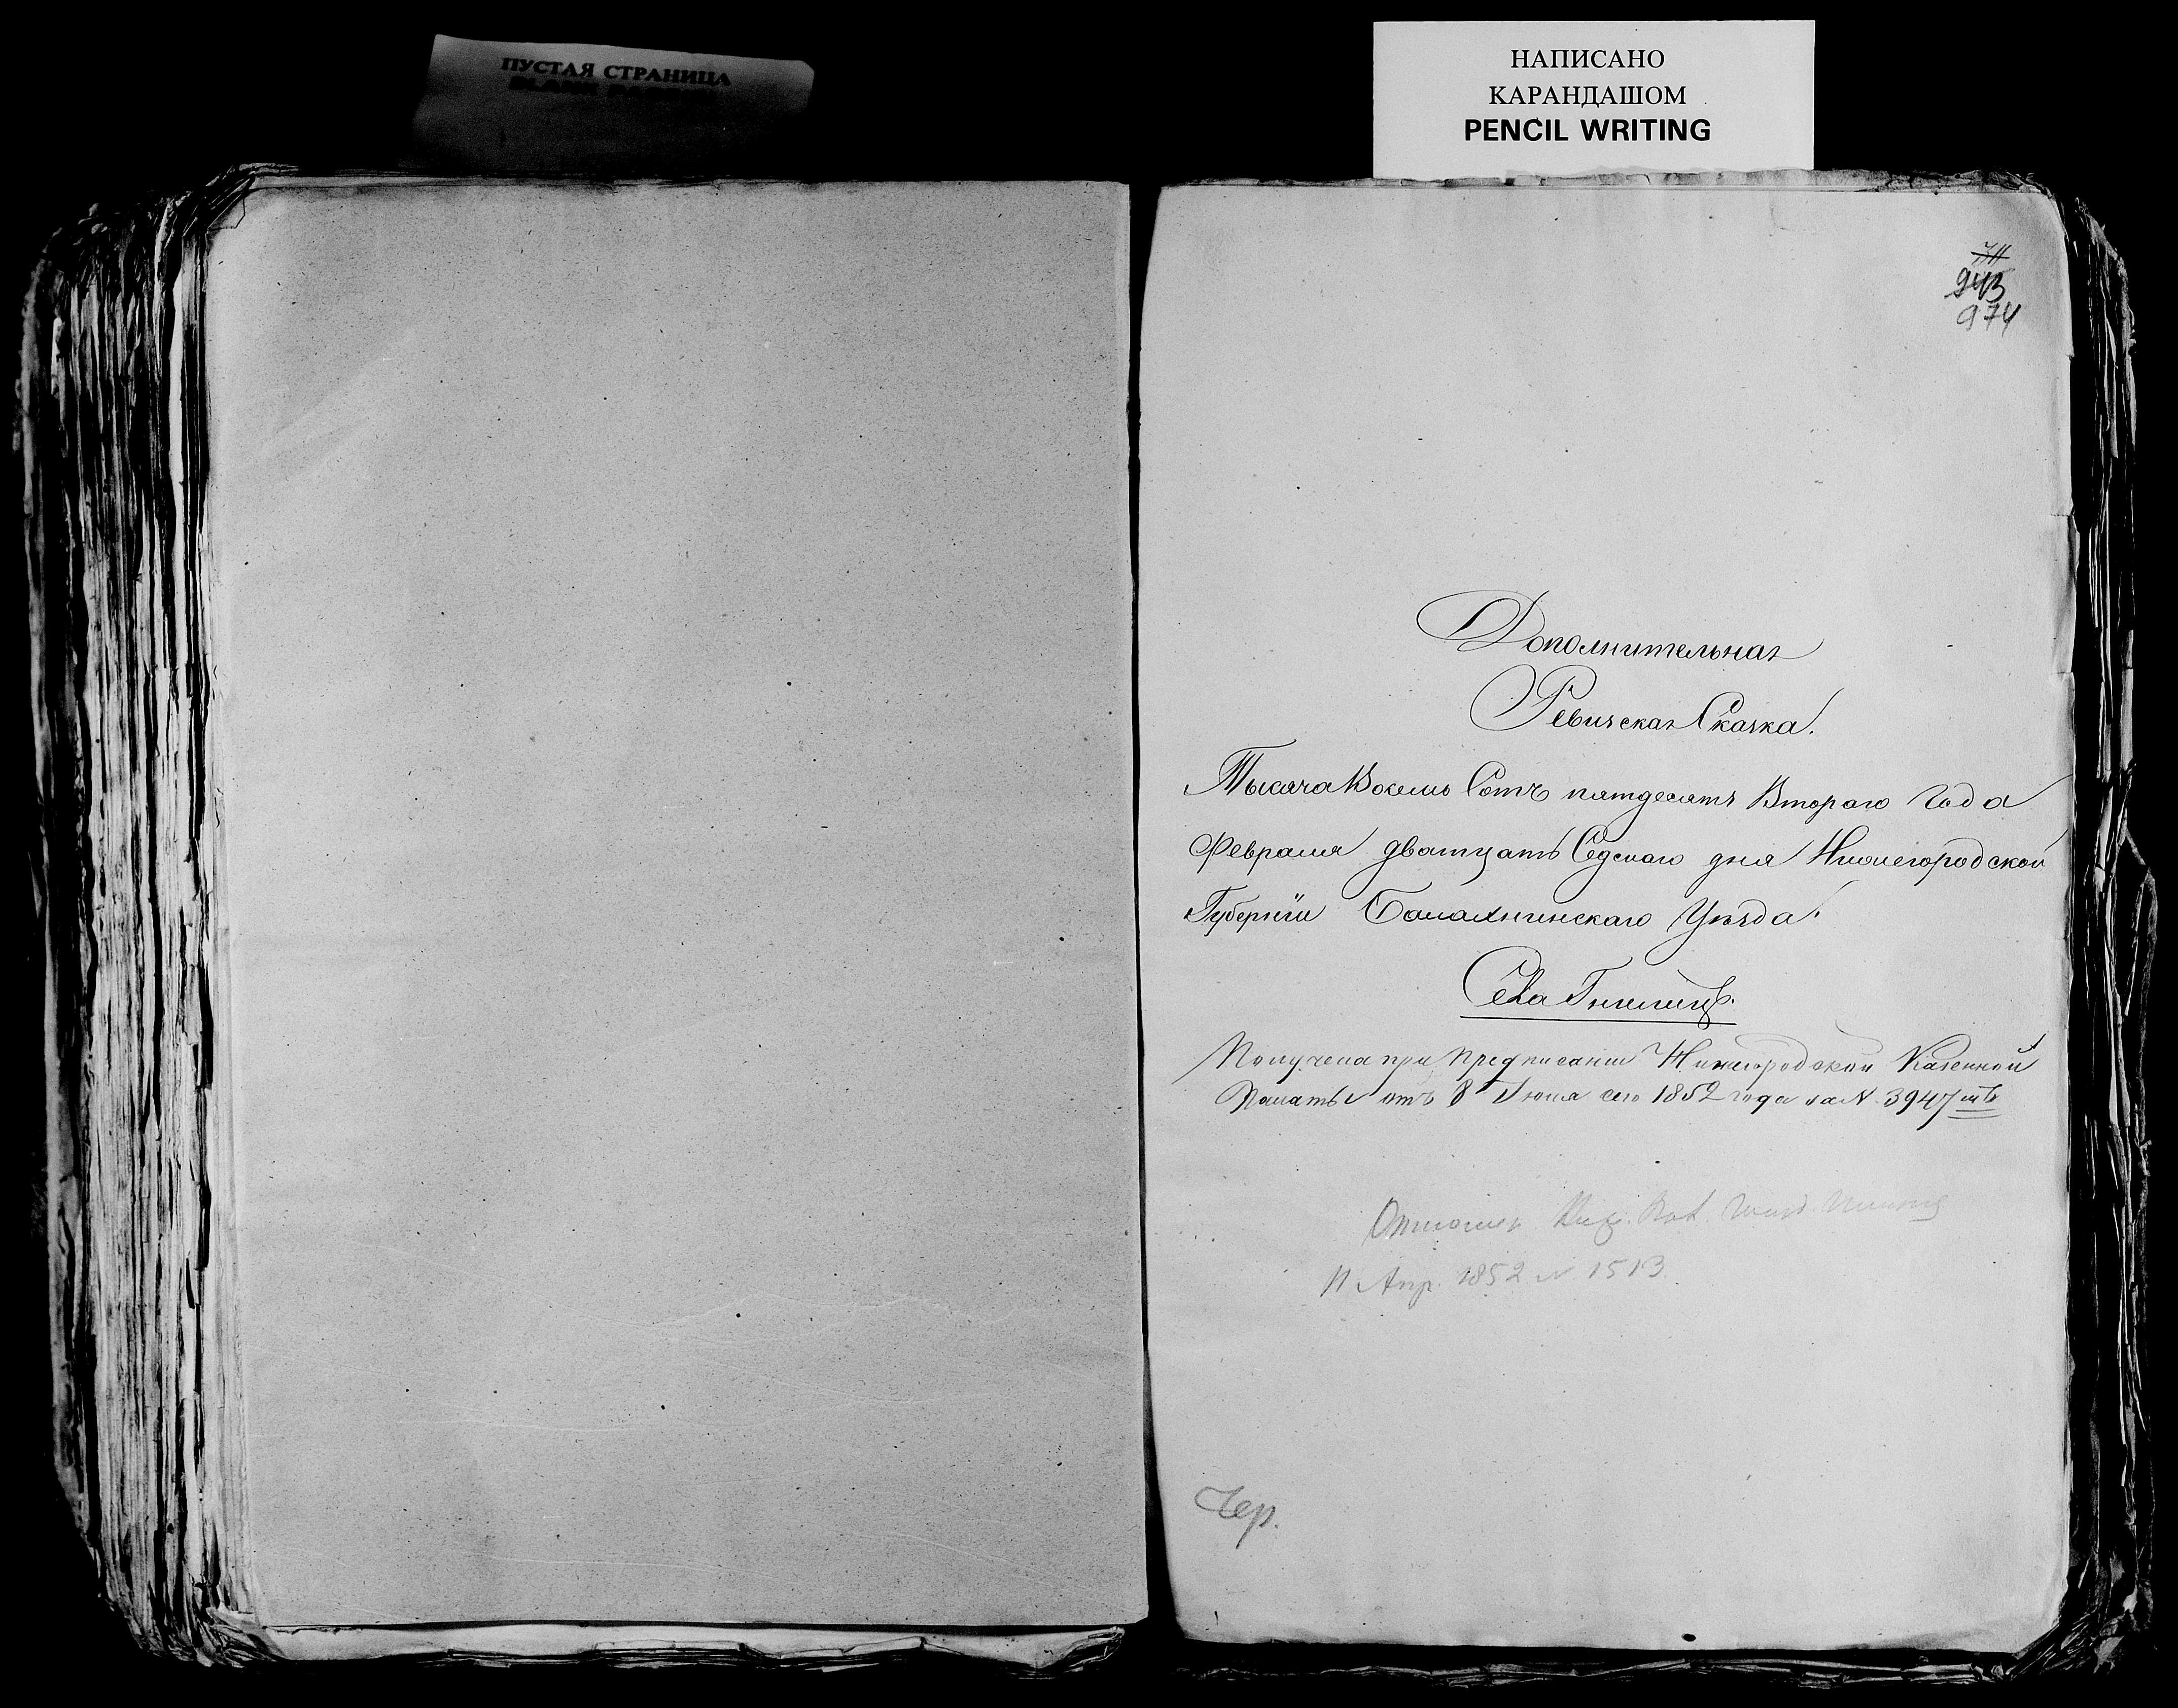 ПУСТАЯ СТРАНИЦА
BLANK
НАПИСАНО
КАРАНДАШОМ
PENCIL WRITING
943
974
Дополнительная
Ревизская Сказка.
Тысяча Восемь Сотъ пятдесятъ Втораго Года
Февраля дватцать Седмаго дня Нижегородской
Губернiи Балахнинскаго Уѣзда.
Села Гнилицъ.
Получена при предписанiи Нижегородской Казенной
Палаты отъ 8 Iюня сего 1852 года за N. 3947мъ
11 Апр. 1852 N 1513.
Чер.